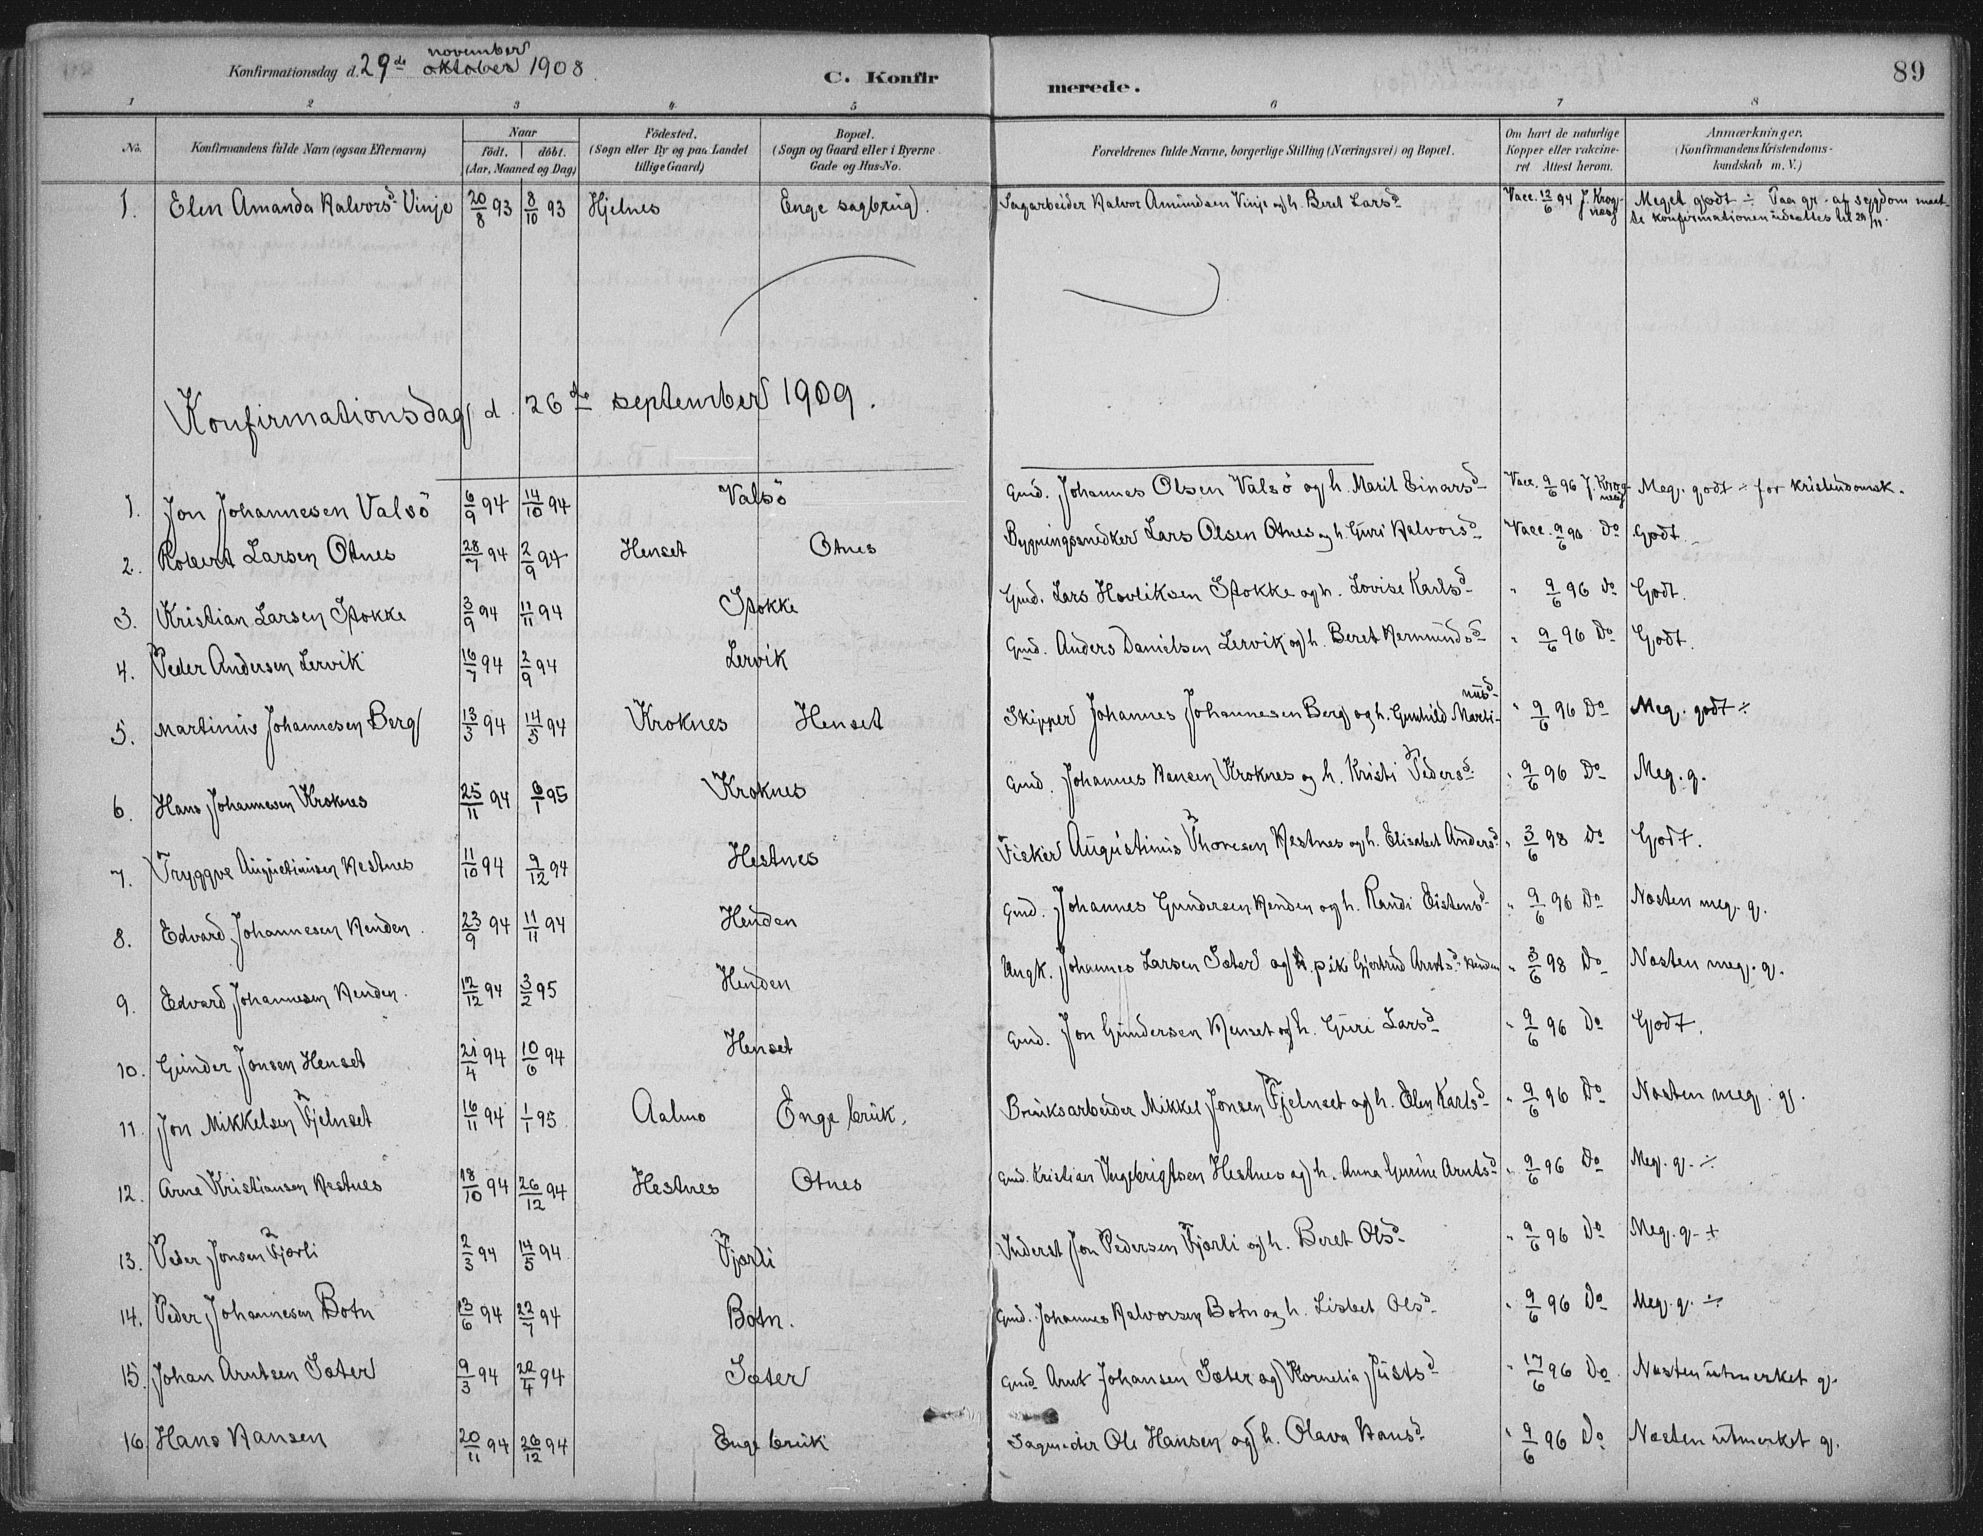 Konfirmationsdag d. 29de november oktober 1908.
C. Konfirmerede.
89
1 2 3 4 5 6 7 8
No.
Konfirmandens fulde Navn (ogsaa Efternavn)
Naar
födt. döbt.
(Aar, Maaned og Dag)
Födested.
(Sogn eller By og paa Landet
tillige Gaard)
Bopæl.
(Sogn og Gaard eller i Byerne
Gade og Hus-No.
Forældrenes fulde Navne, borgerlige Stilling (Næringsvei) og Bopæl.
Om havt de naturlige
Kopper eller vakcine-
ret Attest herom.
Anmærkninger.
(Konfirmandens Kristendoms-
kundskab m. V.)
1. Elen Amanda Halvorsd. Vinje 20/8 93 8/10 93 Hjelnes Enge sagbrug. Sagarbeider Halvor Amundsen Vinje og h. Beret Larsd Vacc. 12/6 94 J. Krognes Meget godt ÷ Paa gr. af sygdom maatte konfirmationen udsættes til 29/11.
Konfirmationsdag d. 26de september 1909.
1. Jon Johannesen Valsö 6/9 94 14/10 94 Valsö Gmd. Johannes Olsen Valsö og h. Marit Einarsd Vacc. 9/6 96 J. Krognes Meg. godt ÷ for kristendomsk.
2. Robert Larsen Otnes 28/7 94 2/9 94 Henset Otnes Bygningssnedker Lars Olsen Otnes og h. Guri Halvorsd Vacc. 9/6 96 Do Godt.
3. Kristian Larsen Stokke 3/9 94 11/11 94 Stokke Gmd. Lars Hovliksen Stokke og h. Lovise Karlsd " 9/6 96 Do Godt.
4. Peder Andersen Lervik 16/7 94 2/9 94 Lervik Gmd. Anders Danielsen Lervik og h. Beret Hermundsd " 9/6 96 Do Godt.
5. Martinus Johannesen Berg 13/3 94 14/5 94 Kroknes Henset Skipper Johannes Johannesen Berg og h. Gunhild Martinusd " 9/6 96 Do Meg. godt ÷
6. Hans Johannesen Kroknes 25/11 94 6/1 95 Kroknes Gmd. Johannes Hansen Kroknes og h. Kristi Pedersd " 9/6 96 Do Meg. g.
7. Tryggve Augustinusen Hestnes 11/10 94 9/12 94 Hestnes Fisker Augustinus Thoresen Hestnes og h. Elisabet Andersd " 3/6 98 Do Godt.
8. Edvard Johannesen Henden. 23/9 94 11/11 94 Henden Gmd. Johannes Gundersen Henden og h. Randi Eistensd " 9/6 96 Do Næsten meg. g.
9. Edvard Johannesen Henden. 12/12 94 3/2 95 Henden Ungk. Johannes Larsen Sæter og pike Gjertrud Arntsd Henden " 3/6 98 Do Næsten meg. g.
10. Gunder Jonsen Henset 21/4 94 10/6 94 Henset Gmd. Jon Gundersen Henset og h. Guri Larsd " 9/6 96 Do Godt.
11. Jon Mikkelsen Fjelnset 16/11 94 1/1 95 Aalmo Enge bruk. Bruksarbeider Mikkel Jonsen Fjelnset og h. Elen Karlsd " 9/6 96 Do Næsten meg. g.
12. Arne Kristiansen Hestnes 18/10 94 26/12 94 Hestnes Otnes Gmd. Kristian Ingebrigtsen Hestnes og h. Anna Gurine Arntsd " 9/6 96 Do Meg. g. ÷
13. Peder Jonsen Fjærli 2/3 94 14/5 94 Fjærli Inderst Jon Pedersen Fjærli og h. Beret Olsd " 9/6 96 Do Meg. g. +
14. Peder Johannesen Botn 13/6 94 22/7 94 Botn. Gmd. Johannes Halvorsen Botn og h. Lisbet Olsd " 9/6 96 Do Meg. g. ÷
15. Johan Arntsen Sæter 9/3 94 22/4 94 Sæter Gmd Arnt Johansen Sæter og Kornelia Justsd " 17/6 96 Do Næsten utmerket g.
16. Hans Hansen 20/11 94 26/12 94 Enge bruk Ole Hansen og h. Olava Hansd " 9/6 96 Do Næsten utmerket g.